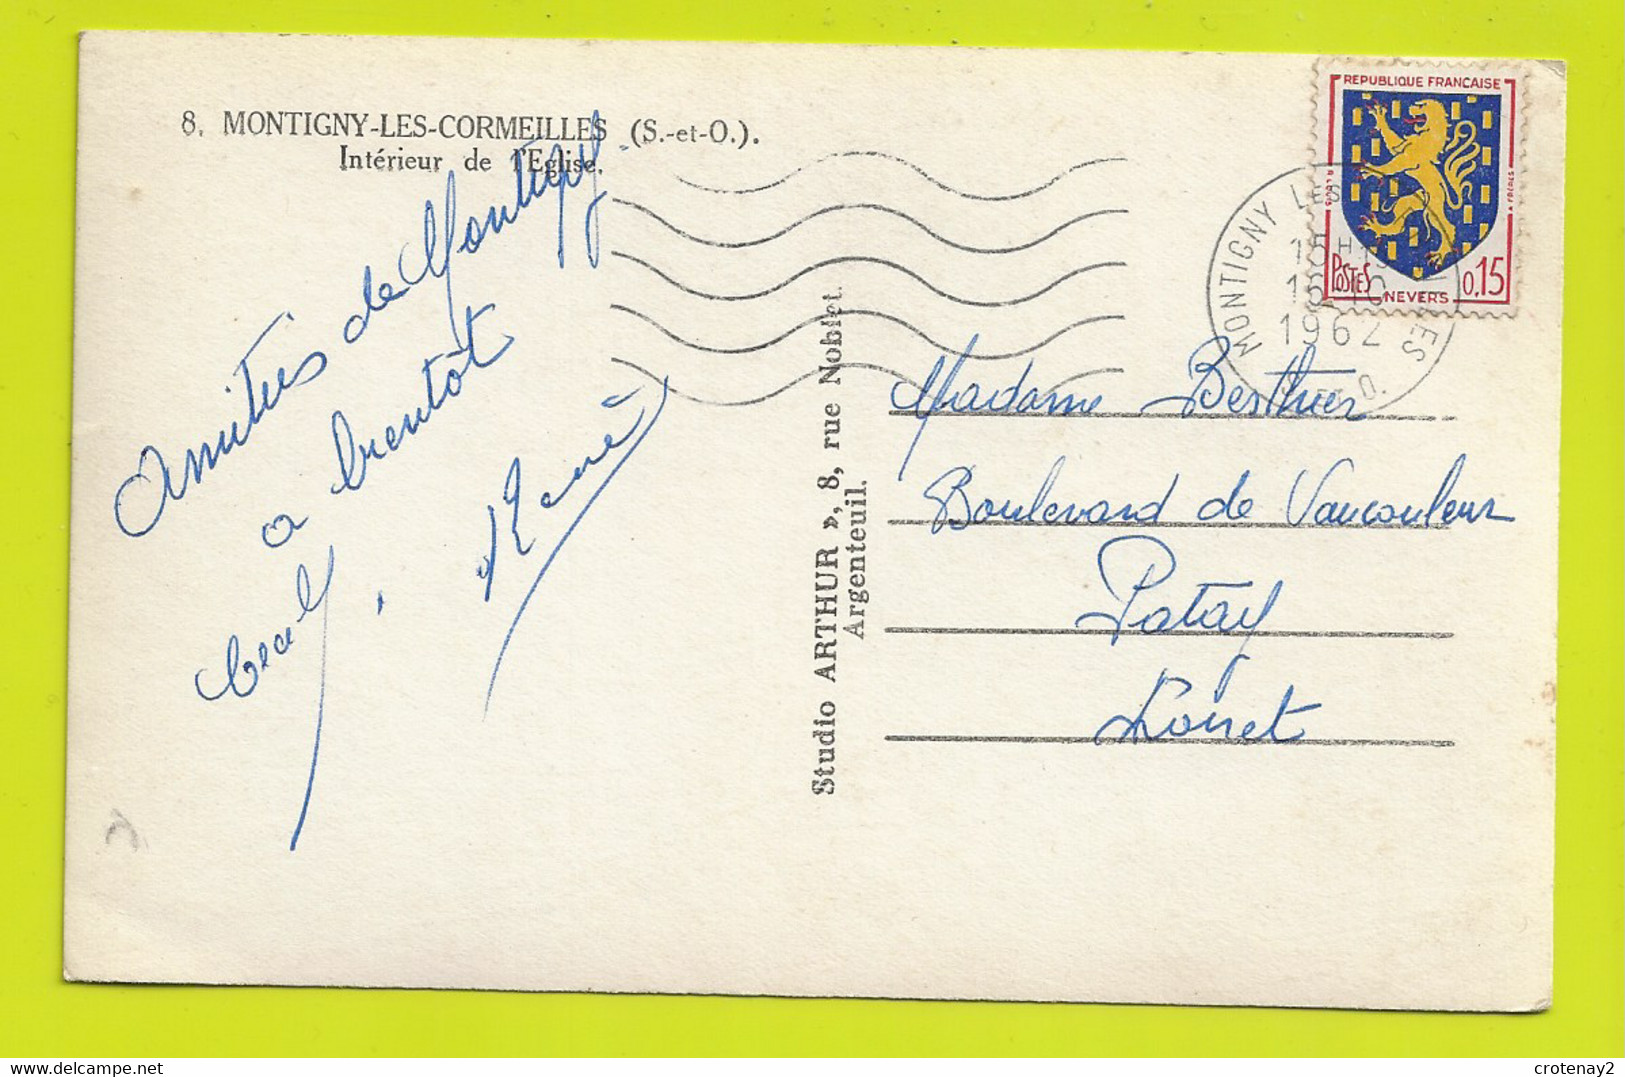 8. MONTIGNY-LES-CORMEILLES (S.-et-O.).
Intérieur de l'Eglise.
Amitiés de Montigny
a bientôt
René
Studio ARTHUR », 8, rue Noblet.
Argenteuil.
REPUBLIQUE FRANCAISE
POSTES
NEVERS
0,15
MONTIGNY LES
1962
Madame Berthier
Boulevard de Vaucouleur
Patay
Loiret
crotenay2